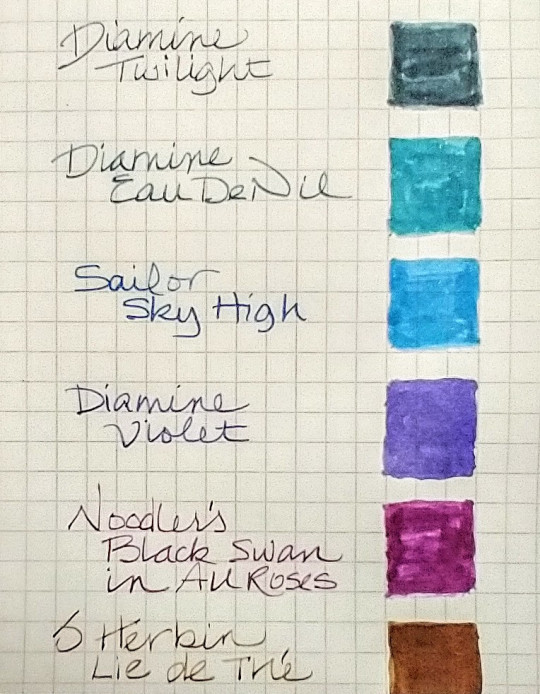 Diamine
Twilight
Diamine
Eau De Nil
Sailor
Sky High
Diamine
Violet
Noodler's
Black Swan
in Au Roses
J Herbin
Lie de Thé